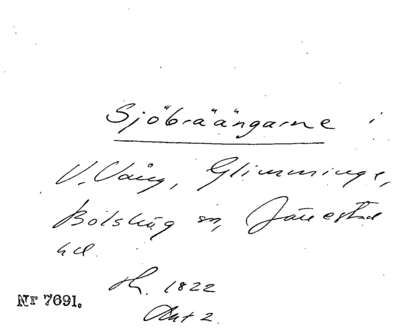 Sjöbräängarne i
V. Vång, Glimminge,
Bölshög sn, Järrestad
hd.
Sk. 1822
Akt 2.
Nr 7691.